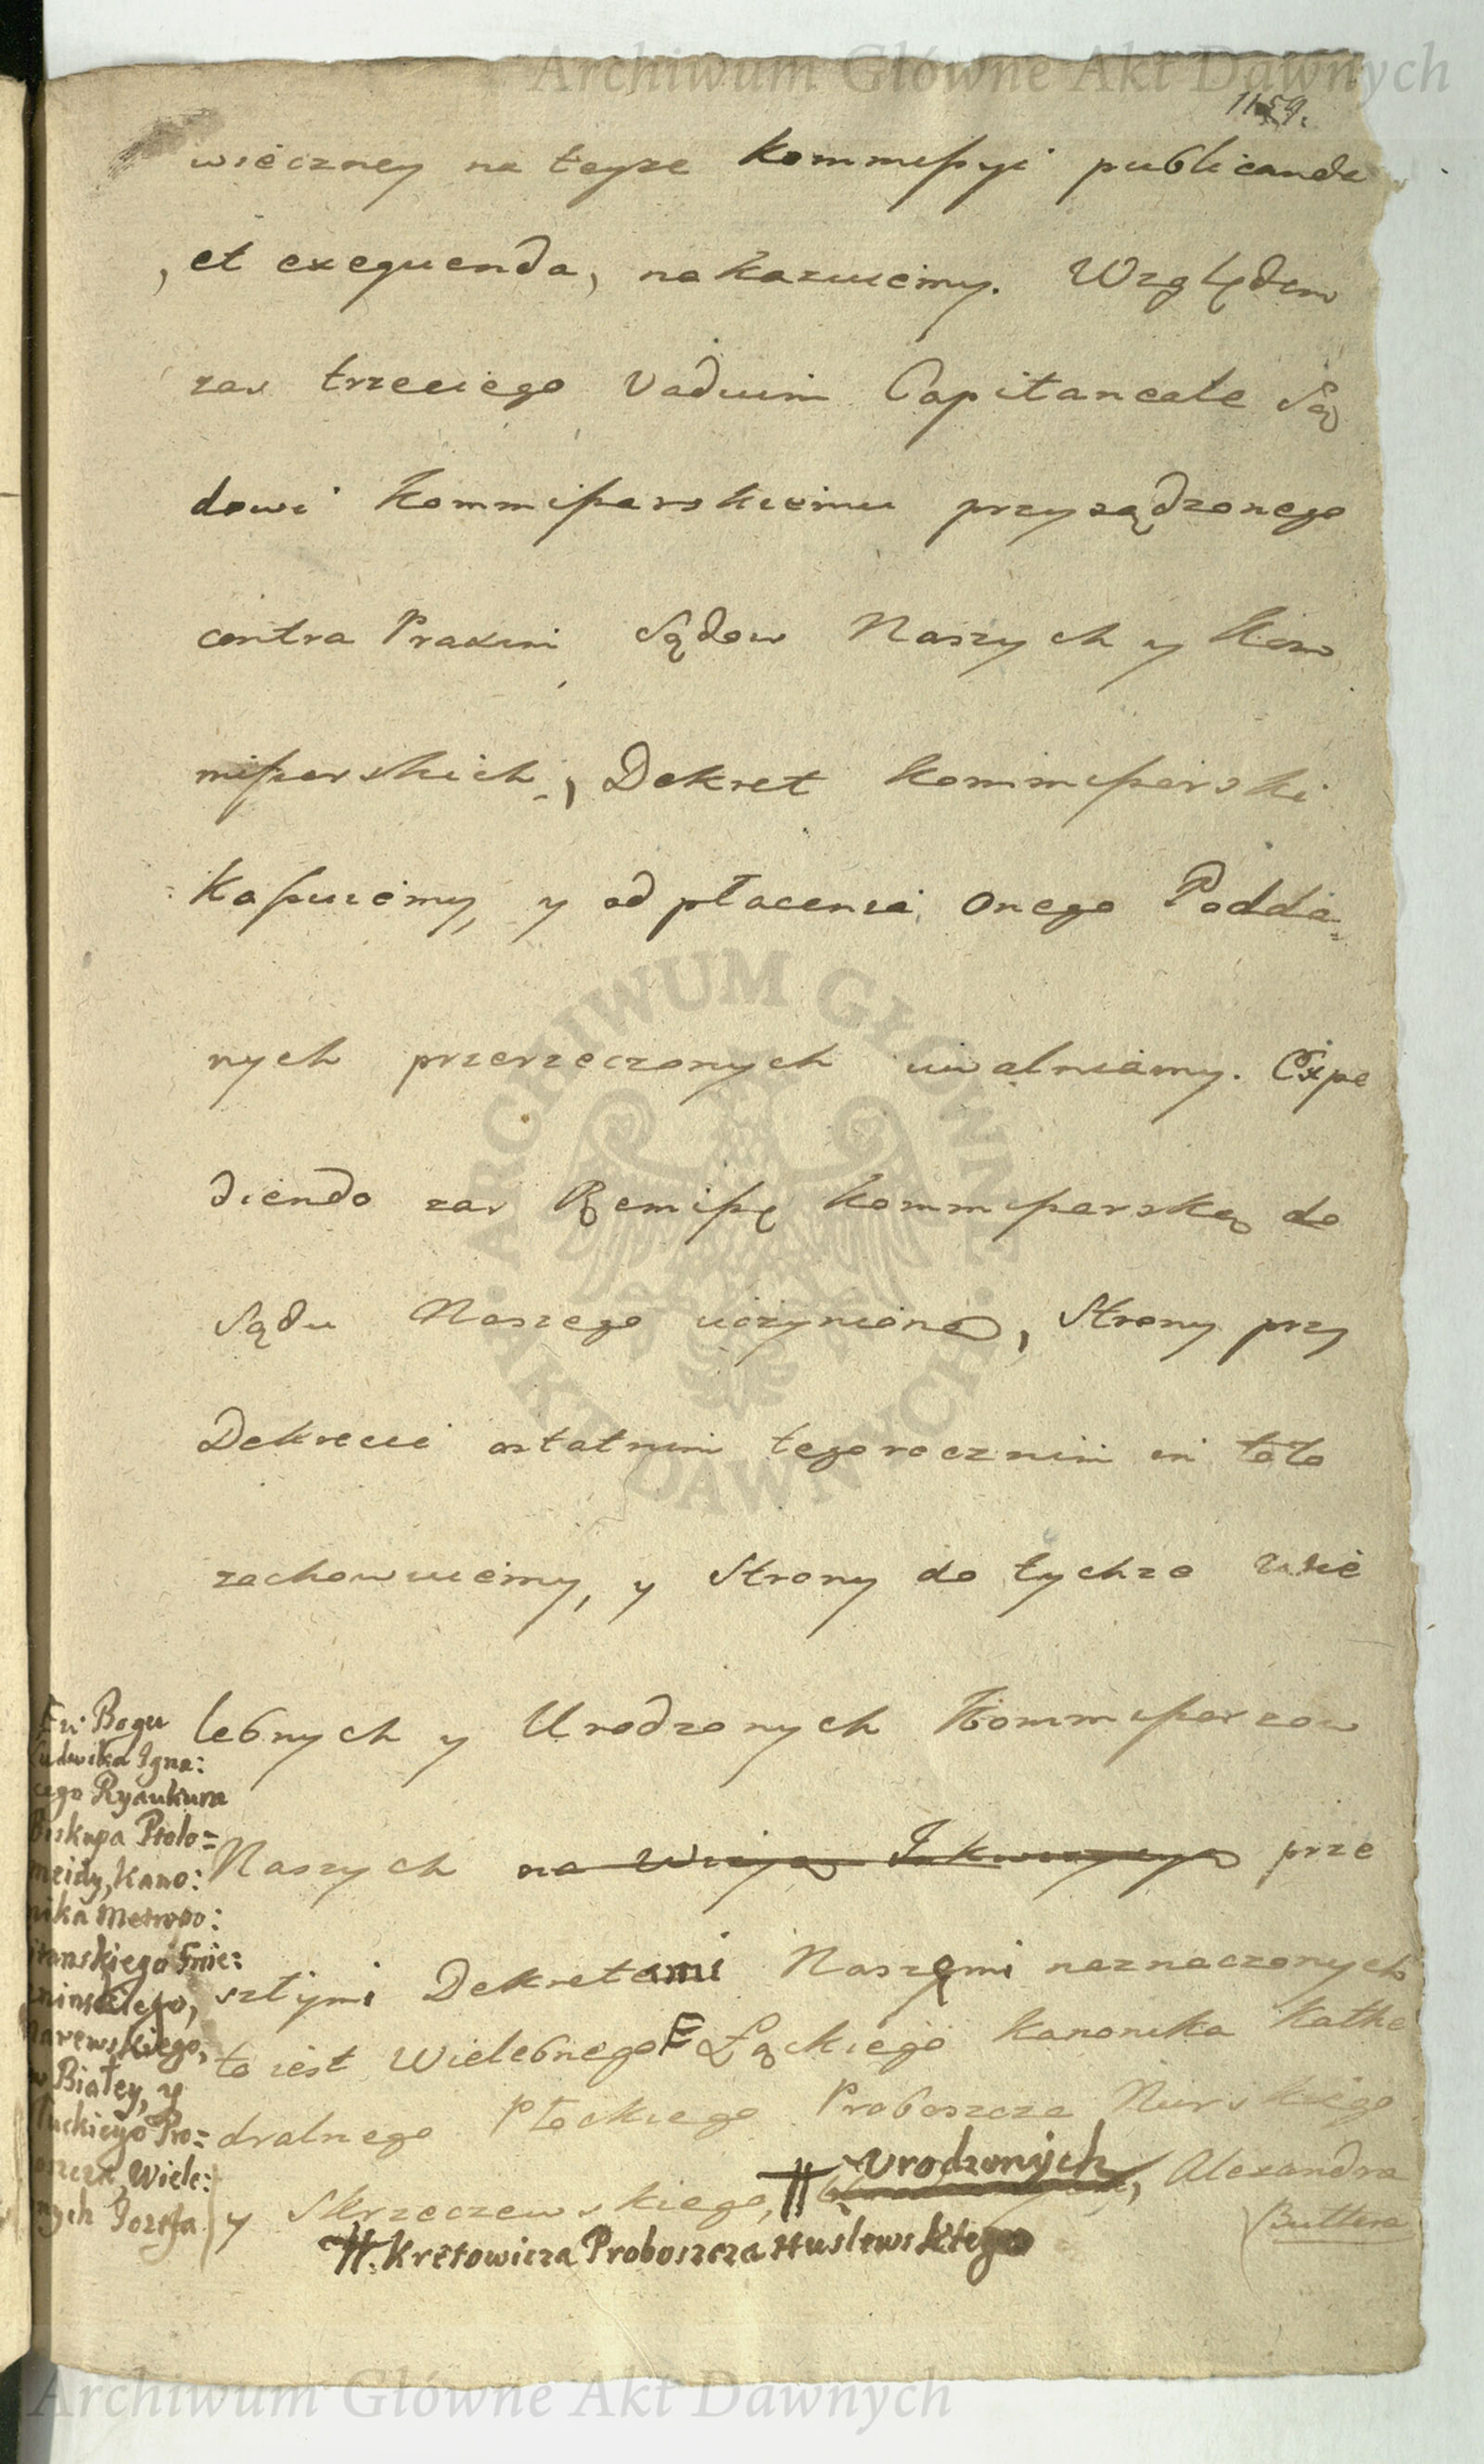 Archiwum Główne Akt Dawnych
1159.
wieczney na teyże kommissyi publicanda
et exequenda, nakazuiemy. Względem
zas trzeciego Vadium Capitaneale Są
dowi kommissarskiemu przysądzonego
contra Praxim Sądow Naszych y kom
missarskich, Dekret kommissarski
kassuiemy, y od płacenia onego Podda
nych przerzeczonych uwalniamy. Expe
diendo zas Remissę kommissarską do
Sądu Naszego uczynioną, Strony przy
Dekrecie ostatnim tegorocznim in toto
zachowuiemy, y Strony do tychże Wie
lebnych y Urodzonych Kommissarzow
Naszych na Wizyą Inkwizycyą prze
szłymi Dekretami Naszęmi naznaczonych
to iest Wielebnego F Łąckiego Kanonika Kathe
dralnego Płockiego Proboszcza Nurskiego
y Skrzeczewskiego, # Urodzonych, Alexandra
Buttera
#. Kretowicza Proboszcza Huslewskiego
F w Bogu
Ludwika Igna:
cego Ryaukura
Biskupa Ptolo=
meidy, Kano:
nika Metropo:
litanskiego Gnie:
zninskiego,
w Białey, y
Łuckiego Pro=
boszcza, Wiele:
bnych Jozefa
ARCHIWUM GŁÓWNE AKT DAWNYCH
Archiwum Główne Akt Dawnych